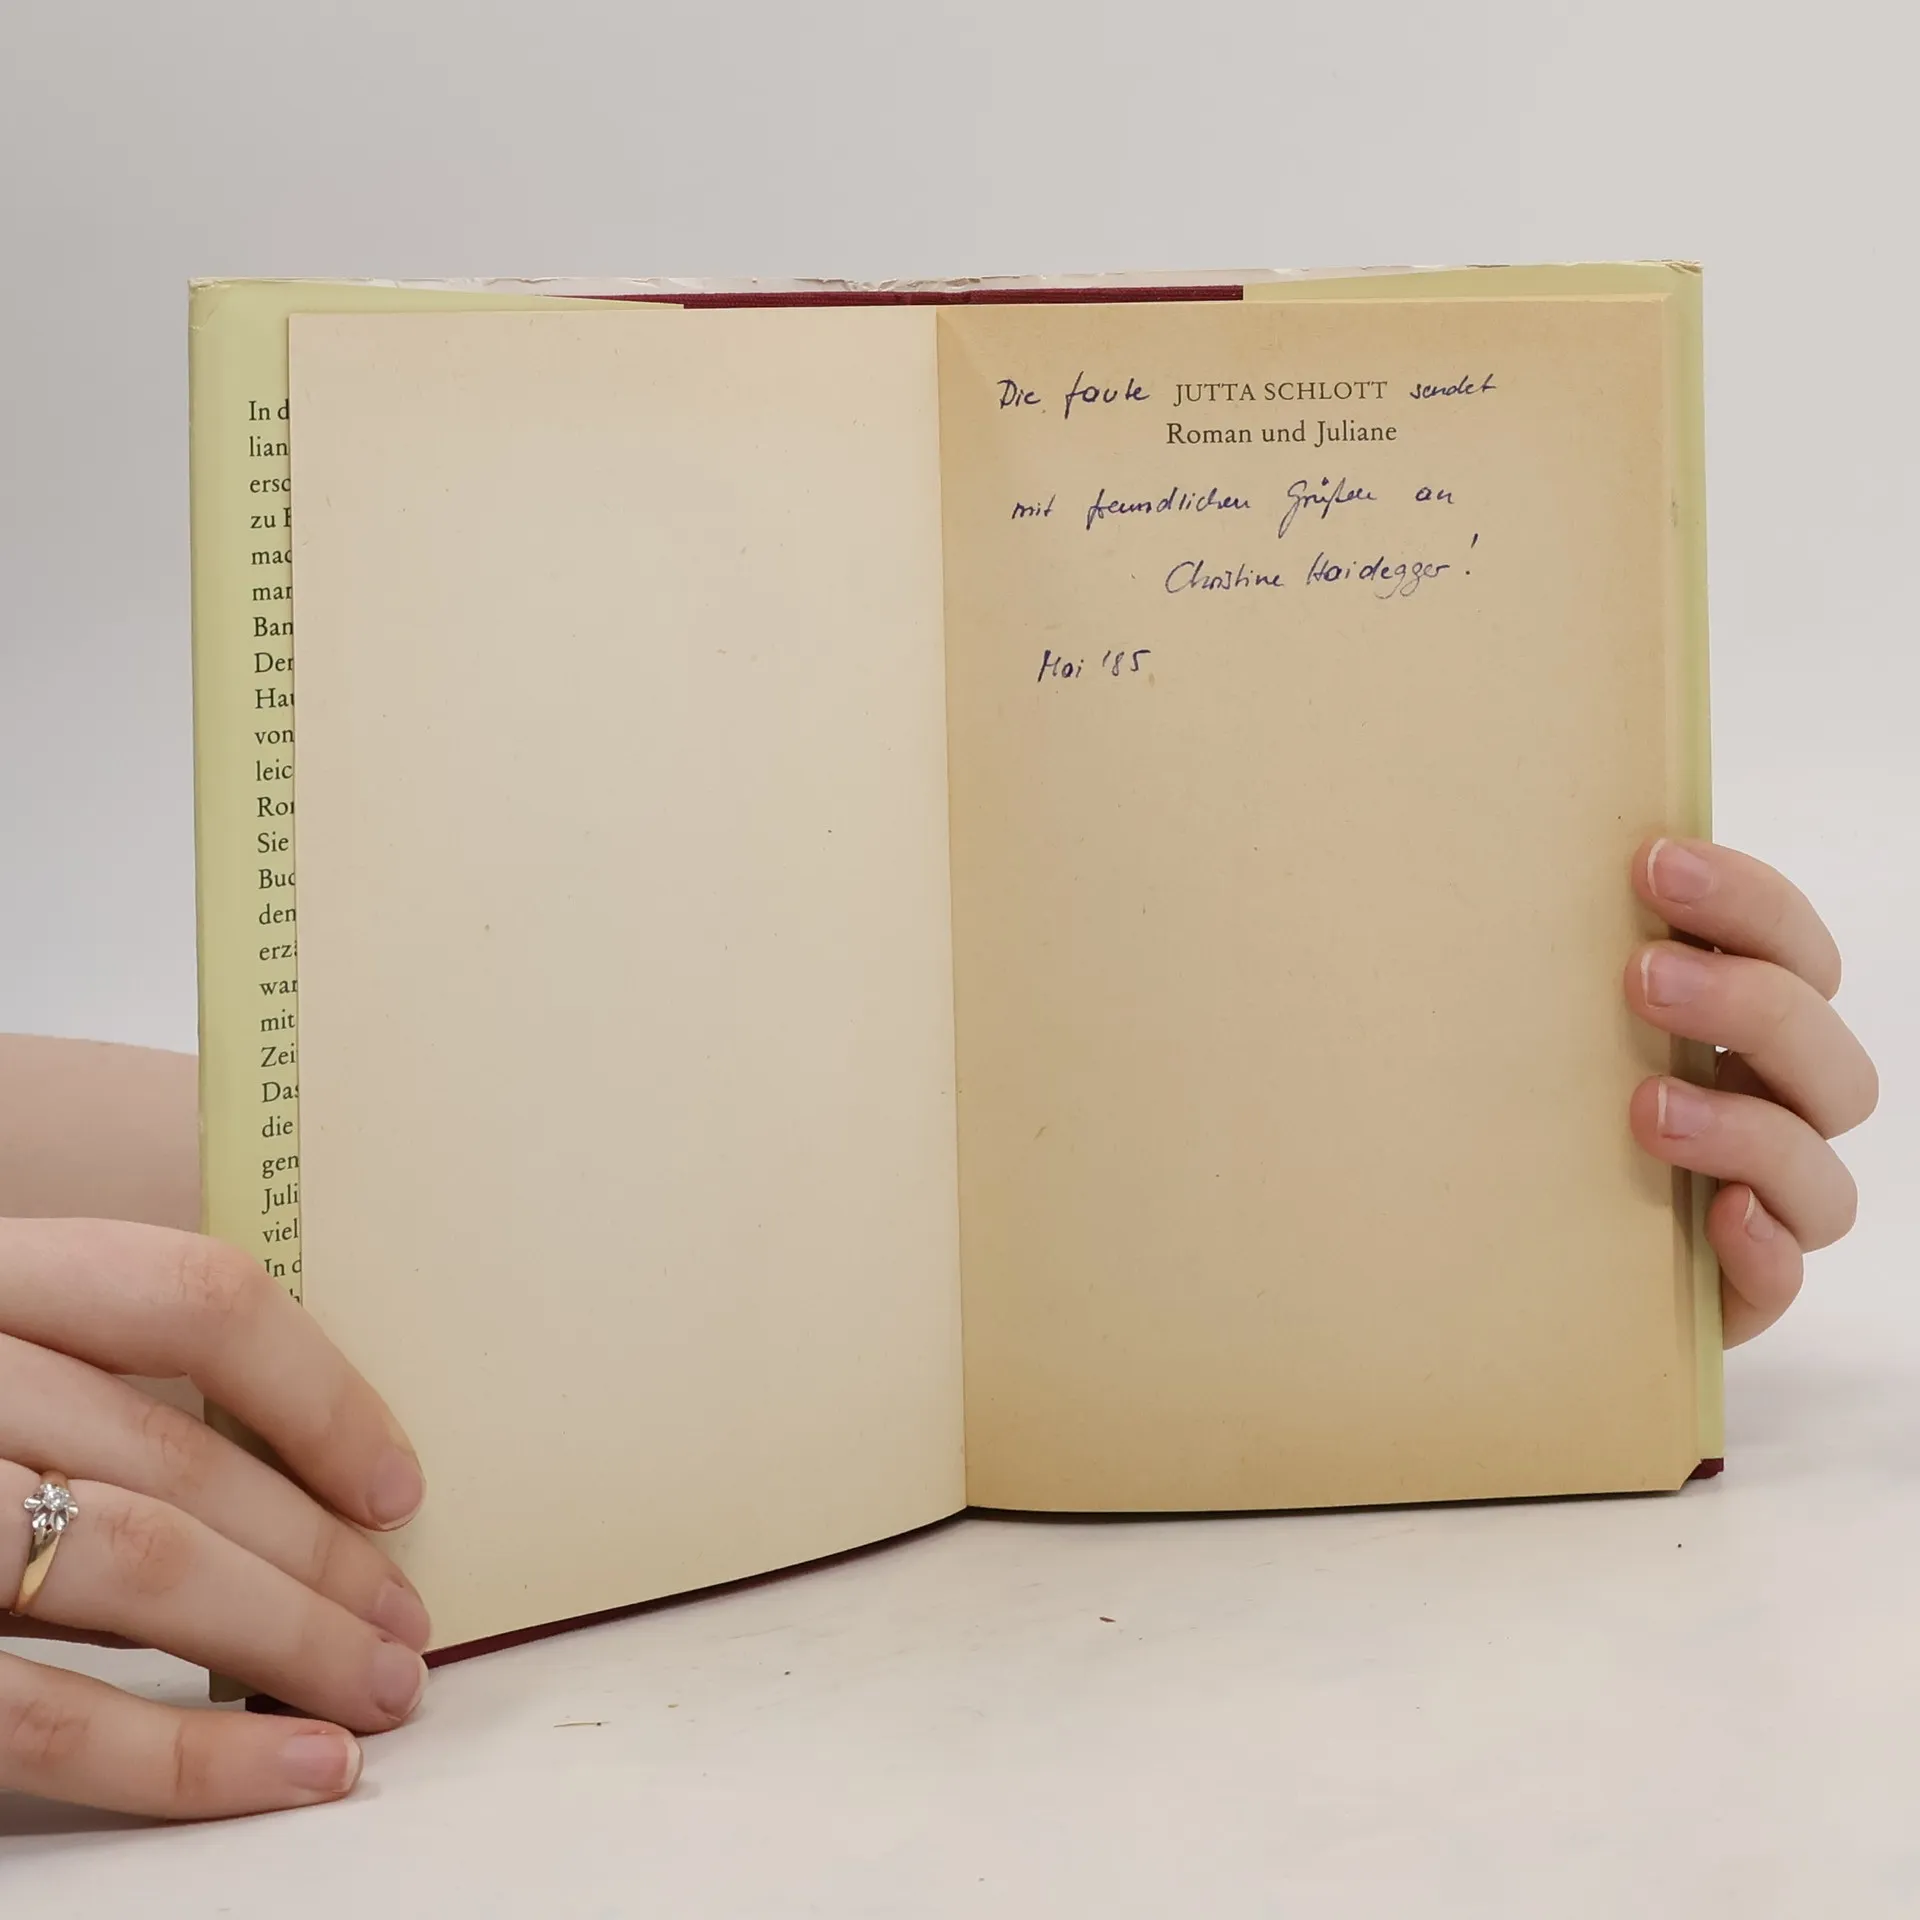 In d
lian
ersc
zu
mac
mar
Ban
Der
Hau
von
leic
Ror
Sie
Buc
den
erzä
war
mit
Zei
Das
die
gen
Juli
viel
In d
Die faule JUTTA SCHLOTT sendet
Roman und Juliane
mit freundlichen Grüßen an
Christine Haidegger!
Mai '85